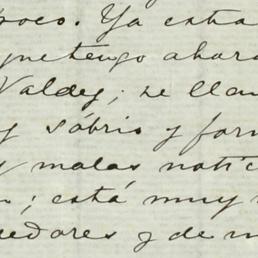 poco. Ya está
que tengo ahora
Valdez; se llam
y sóbrio y for
y malas notic
; está muy
y de m